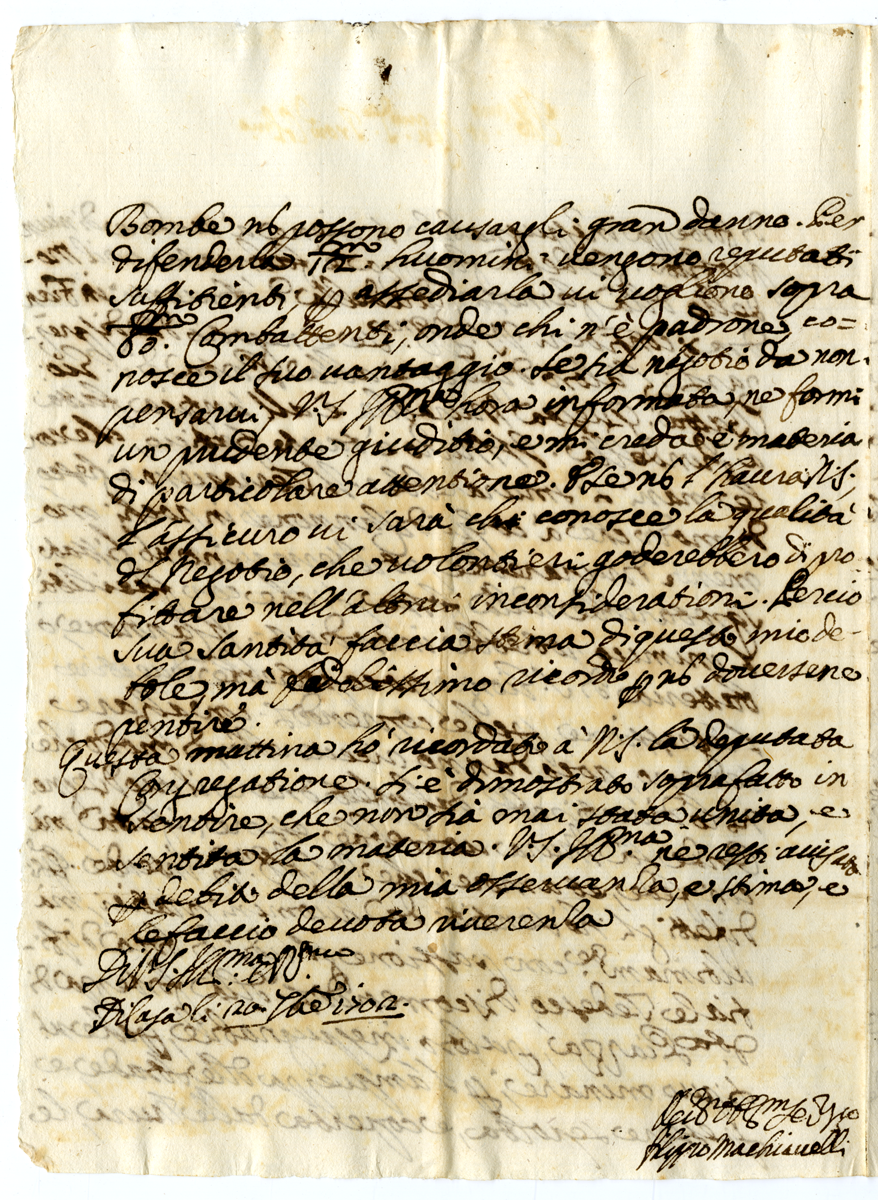 Bombe nõ possono causargli gran danno. Per
difenderla huomini vengono reputati
suffitienti p assediarla vi vogliono sopra
Combattenti, onde chi n'è padrone, co=
nosce il suo vantaggio. Se sia negotio da non
pensarvi, V.S. Ill.ma hora informata, ne formi
un prudente giuditio, e mi creda è materia
di particolare attentione. E se nõ l'haurà N.S.,
l'assicuro vi sarà chi conosce la qualità
del Negotio, che volontieri goderebbero di pro
fittare nell'altrui inconsiderationi. Perciò
sua santità faccia stima di questo mio de-
bole, mà fedelissimo ricordo p nõ doversene
pentire.
Questa mattina hò ricordato à N.S. la deputata
Congregatione. Si è dimostrato soprafatto in
sentire, che non sia mai stata unita, e
sentita la materia. V.S. Ill.ma ne resti avisata
p debito della mia osservanza, e stima, e
le faccio devota riverenza
Di V.S. Ill.ma e R.ma
Di Casa li 20 1702.
Filippo Machiavelli